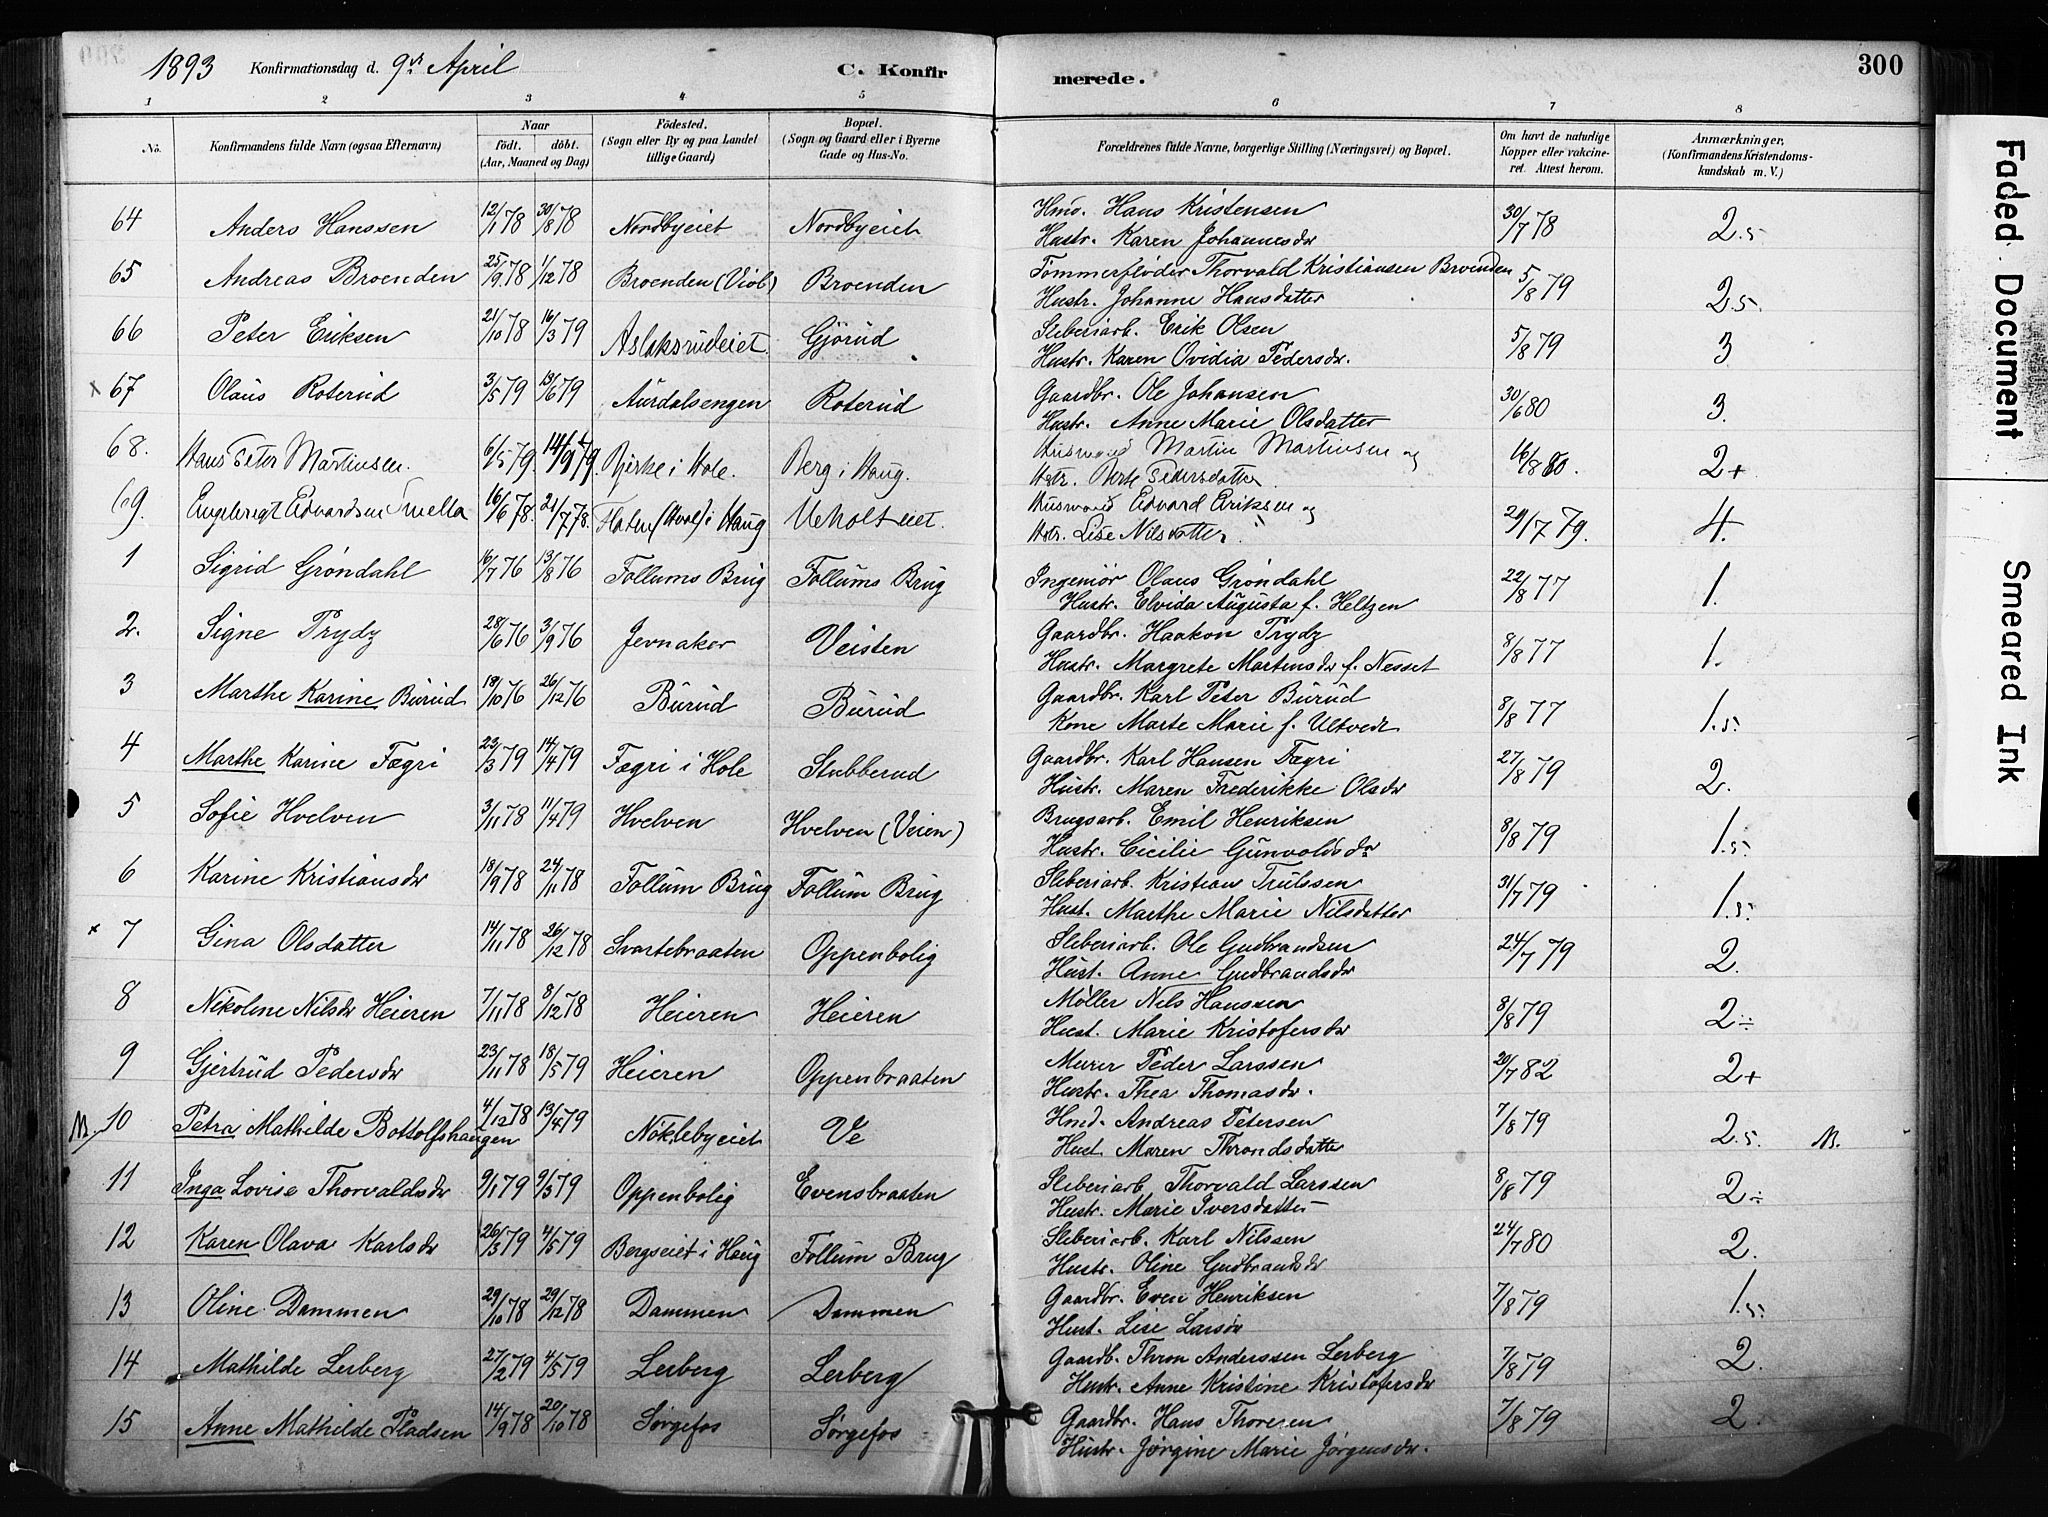 1893 Konfirmationsdag d. 9de April C. Konfirmerede. 300
1 2 3 4 5 6 7 8
No. Konfirmandens fulde Navn (ogsaa Efternavn) Naar födt. döbt. (Aar, Maaned og Dag) Födested. (Sogn eller By og paa Landet tillige Gaard) Bopæl. (Sogn og Gaard eller i Byerne Gade og Hus-No. Forældrenes fulde Navne, borgerlige Stilling (Næringsvei) og Bopæl. Om havt de naturlige Kopper eller vakcineret. Attest herom. Anmærkninger, (Konfirmandens Kristendomskundskab m. V.)
64 Anders Hanssen 12/1 78 30/8 78 Nordbyeiet Nordbyeiet Hmd. Hans Kristensen 30/7 78 2.5
Hustr. Karen Johannesdr
65 Andreas Broenden 25/9 78 1/12 78 Broenden (Viöl) Broenden Tömmerflöder Thorvald Kristiansen Broenden 5/8 79 2.5.
Hustr. Johanne Hansdatter
66 Peter Eriksen 21/10 78 16/3 79 Aslaksrudeiet Gjörud Sliberiarb. Erik Olsen 5/8 79 3
Hustr. Karen Ovidia Pedersdr.
x 67 Olaus Roterud 3/5 79 13/6 79 Aurdalsengen Roterud Gaardbr. Ole Johansen 30/6 80 3.
Hustr. Anne Marie Olsdatter
68. Hans Peter Martinsen. 6/5 79. 14/9 79. Bjerke i Hole. Berg i Haug. Husmand Martin Martinsen og 16/8 80. 2+
Hstr. Berte Pedersdatter
69. Engebregt Edvardsen Smella 16/6 78. 21/7 78. Flaten (Hval) i Haug Veholteiet. Husmand Edvard Eriksen og 29/7 79. 4.
Hstr. Lise Nilsdatter
1 Sigrid Gröndahl 16/7 76 13/8 76 Follums Brug Follums Brug Ingeniör Olaus Gröndahl 22/8 77 1.
Hustr. Elvida Augusta f. Heltzen
2. Signe Trydz 28/6 76 3/9 76 Jevnaker Veisten Gaardbr. Haakon Trydz 8/8 77 1.
Hustr. Margrete Martinsdr f. Nesset
3 Marthe Karine Burud 18/10 76 26/12 76 Burud Burud Gaardbr. Karl Peter Burud 8/8 77 1.5.
Kone Marte Marie f. Ultvedt
4 Marthe Karine Fægri 23/3 79 14/4 79 Fægri i Hole Stubberud Gaardbr. Karl Hansen Fægri 27/8 79 2.
Hustr. Maren Frederikke Olsdr
5 Sofie Hvelven 3/11 78 11/4 79 Hvelven Hvelven (Veien) Brugsarb. Emil Henriksen 8/8 79 1.5.
Hustr. Cicilie Gunvoldsdr
6 Karine Kristiansdr 18/9 78 24/11 78 Follum Brug Follum Brug Sliberiarb. Kristian Trulssen 31/7 79 1.5.
Hust. Marthe Marie Nilsdatter
x 7 Gina Olsdatter 14/11 78 26/12 78 Svartebraaten Oppenbolig Sliberiarb. Ole Gudbrandsen 24/7 79 2.
Hust. Anne Gudbrandsdr
8 Nikoline Nilsdr Heieren 7/11 78 8/12 78 Heieren Heieren Möller Nils Hanssen 8/8 79 2÷
Hust. Marie Kristofersdr
9 Gjertrud Pedersdr 23/11 78 18/5 79 Heieren Oppenbraaten Murer Peder Larssen 20/7 82 2+
Hustr. Thea Thomasdr.
N. 10 Petra Mathilde Bottolfshaugen 4/12 78 13/4 79 Nöklebyeiet Ve Hmd. Andreas Petersen 7/8 79 2.5. N.
Hust. Maren Throndsdatter
11 Inga Lovise Thorvaldsdr 9/1 79 9/3 79 Oppenbolig Evensbraaten Sliberiarb Thorvald Larssen 8/8 79 2÷
Hustr. Marie Iversdatter
12 Karen Olava Karlsdr 26/3 79 4/5 79 Bergseiet i Haug Follum Brug Sliberiarb. Karl Nilssen 24/7 80 2.
Hustr. Oline Gudbrandsdr
13 Oline Dammen 29/10 78 29/12 78 Dammen Dammen Gaardbr. Even Henriksen 7/8 79 1.5.
Hust. Lise Larsdr
14 Mathilde Lerberg 27/2 79 4/5 79 Lerberg Lerberg Gaardb. Thron Anderssen Lerberg 7/8 79 2.
Hustr. Anne Kristine Kristofersdr
15 Anne Mathilde Pladsen 14/9 78 20/10 78 Sörgefos Sörgefos Gaardbr. Hans Thoresen 7/8 79 2.
Hustr. Jörgine Marie Jörgensdr.
Faded Document
Smeared Ink